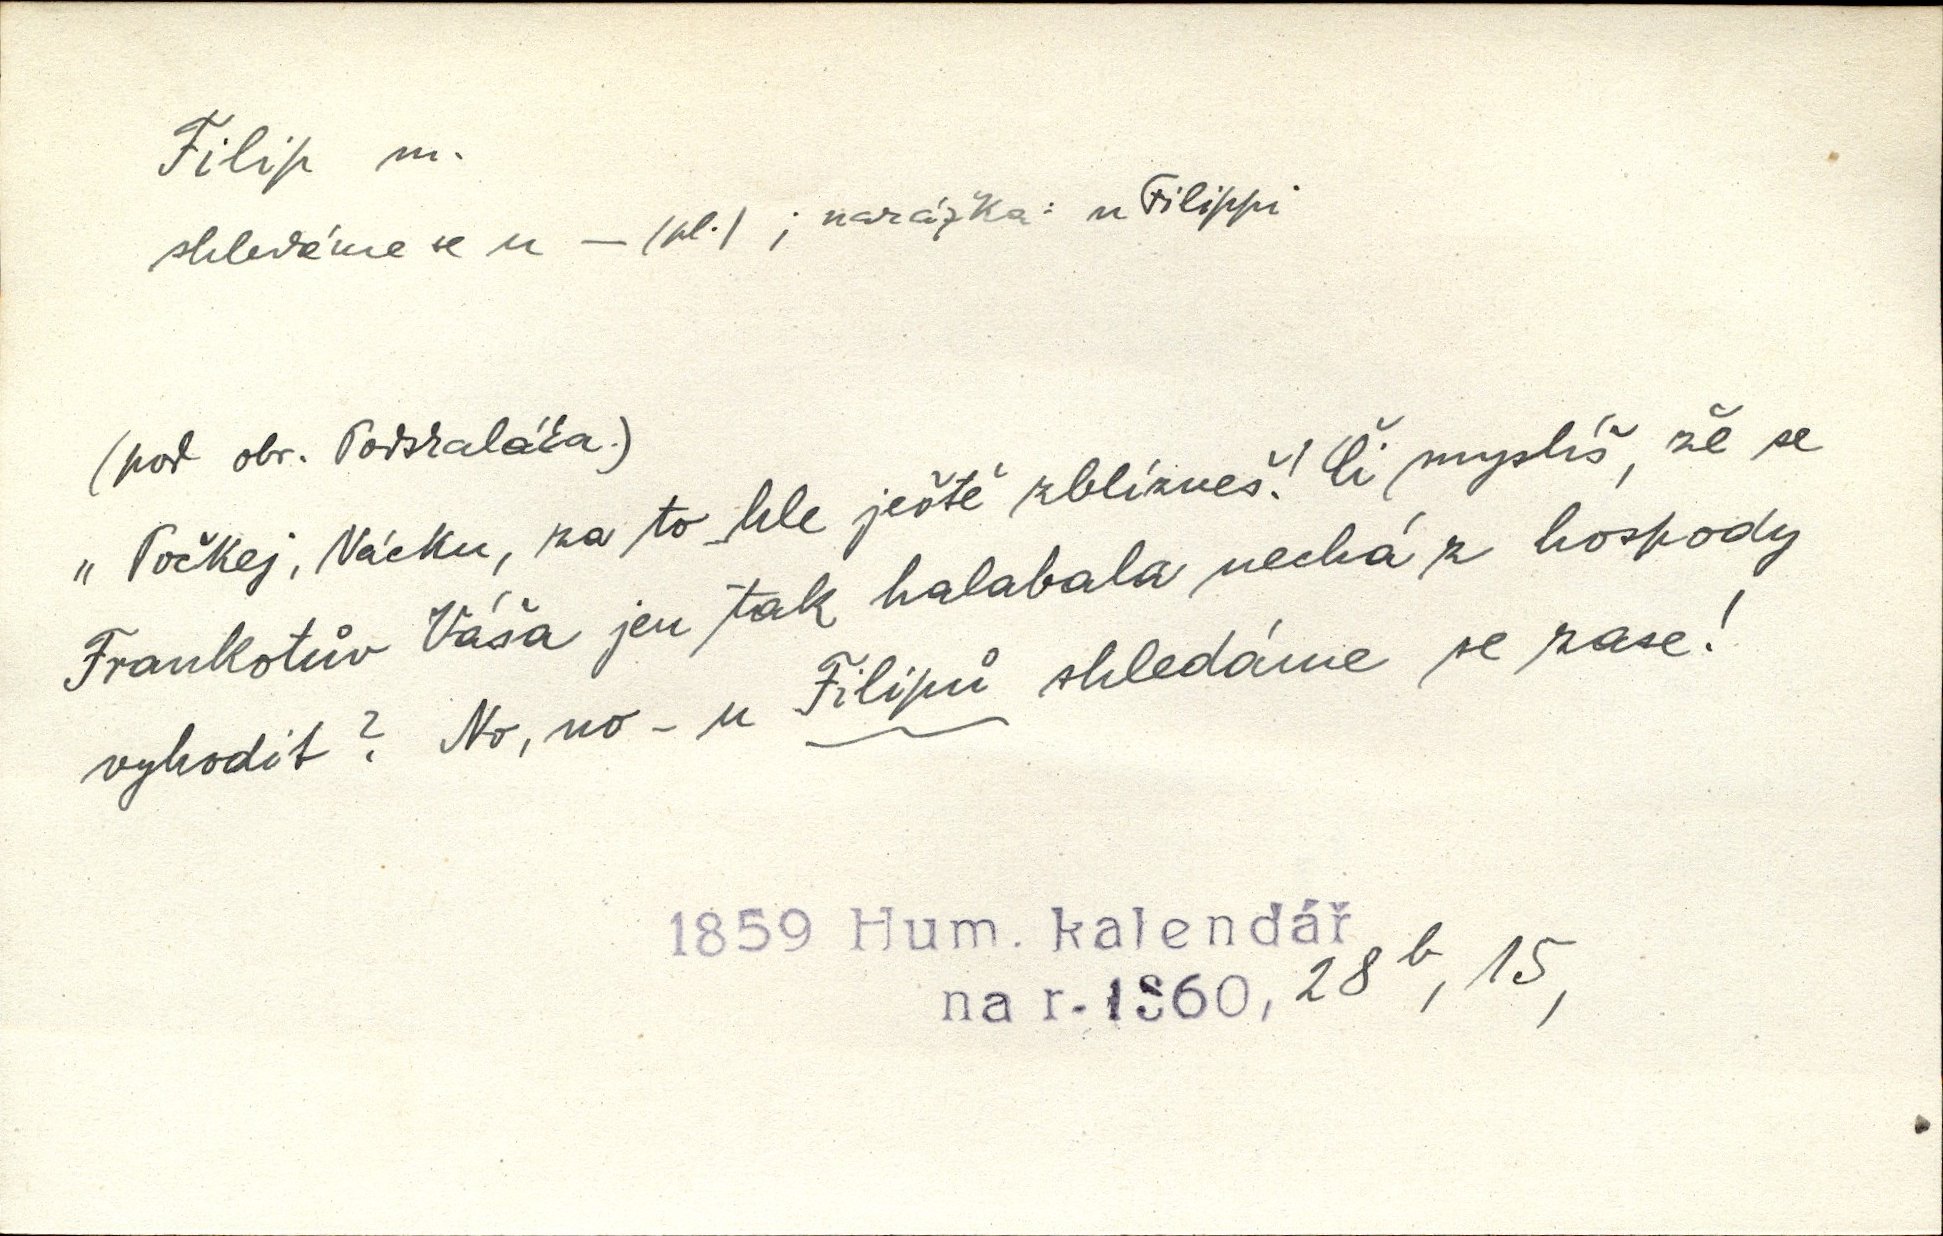 Filip m.
shledáme se u — (pl.) ; narážka: u Filippi
(pod obr. Podskaláka.)
„Počkej, Vácku, za to hle ještě zblízneš! Či myslíš, že se
Frankotův Váša jen tak halabala nechá z hospody
vyhodit? No, no - u Filipů shledáme se zase!
1859 Hum. kalendář
na r. 1860, 28 b, 15,